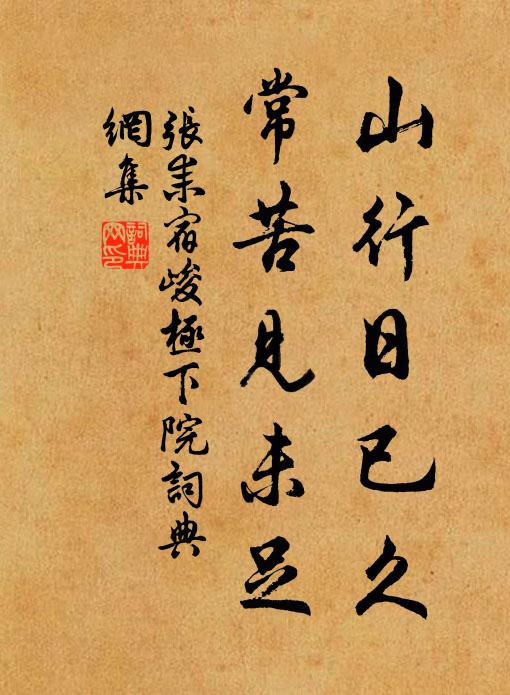 山行日已久
常苦見未足
張耒宿峻極下院詞典
網集
詞典網印